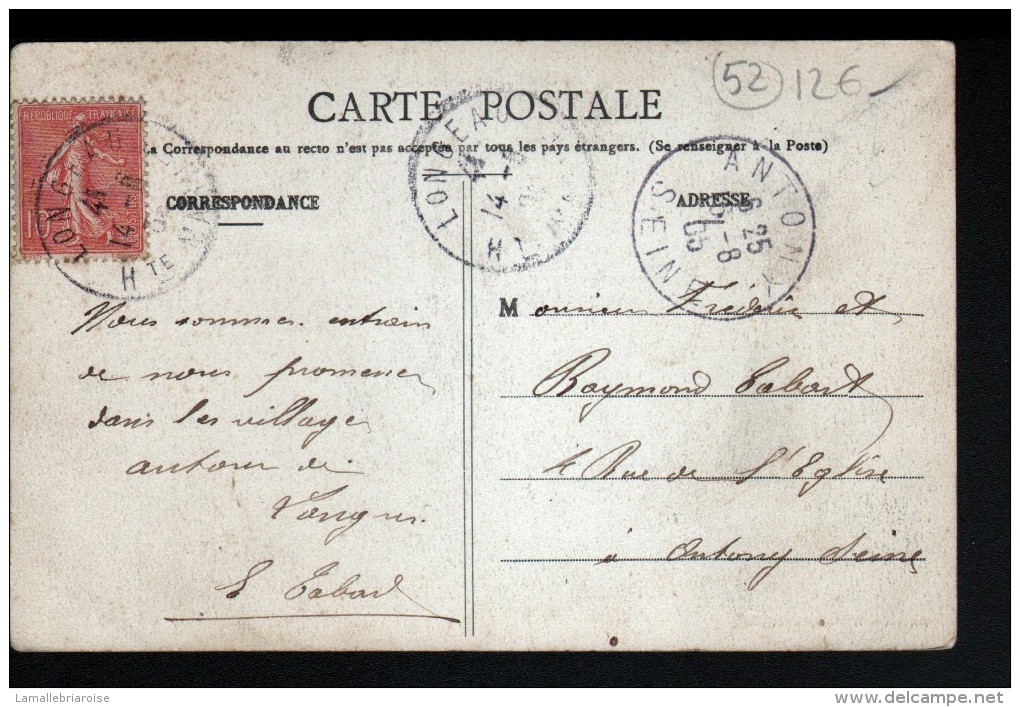 52 126
CARTE POSTALE
La Correspondance au recto n'est pas acceptée par tous les pays étrangers. (Se renseigner à la Poste)
REPUBLIQUE FRANÇAISE
LONGEAU
14 -8
Hte
LONGEAU
14 -8
H
ANTONY
6 25
-8
05
SEINE
CORRESPONDANCE
ADRESSE
Nous sommes entrain
de nous promener
dans les villages
autour de
Langres.
E Tabard
Monsieur Frédéric et
Raymond Tabart
4 Rue de l'Eglise
à Antony Seine
Lamallebriaroise
www.delcampe.net